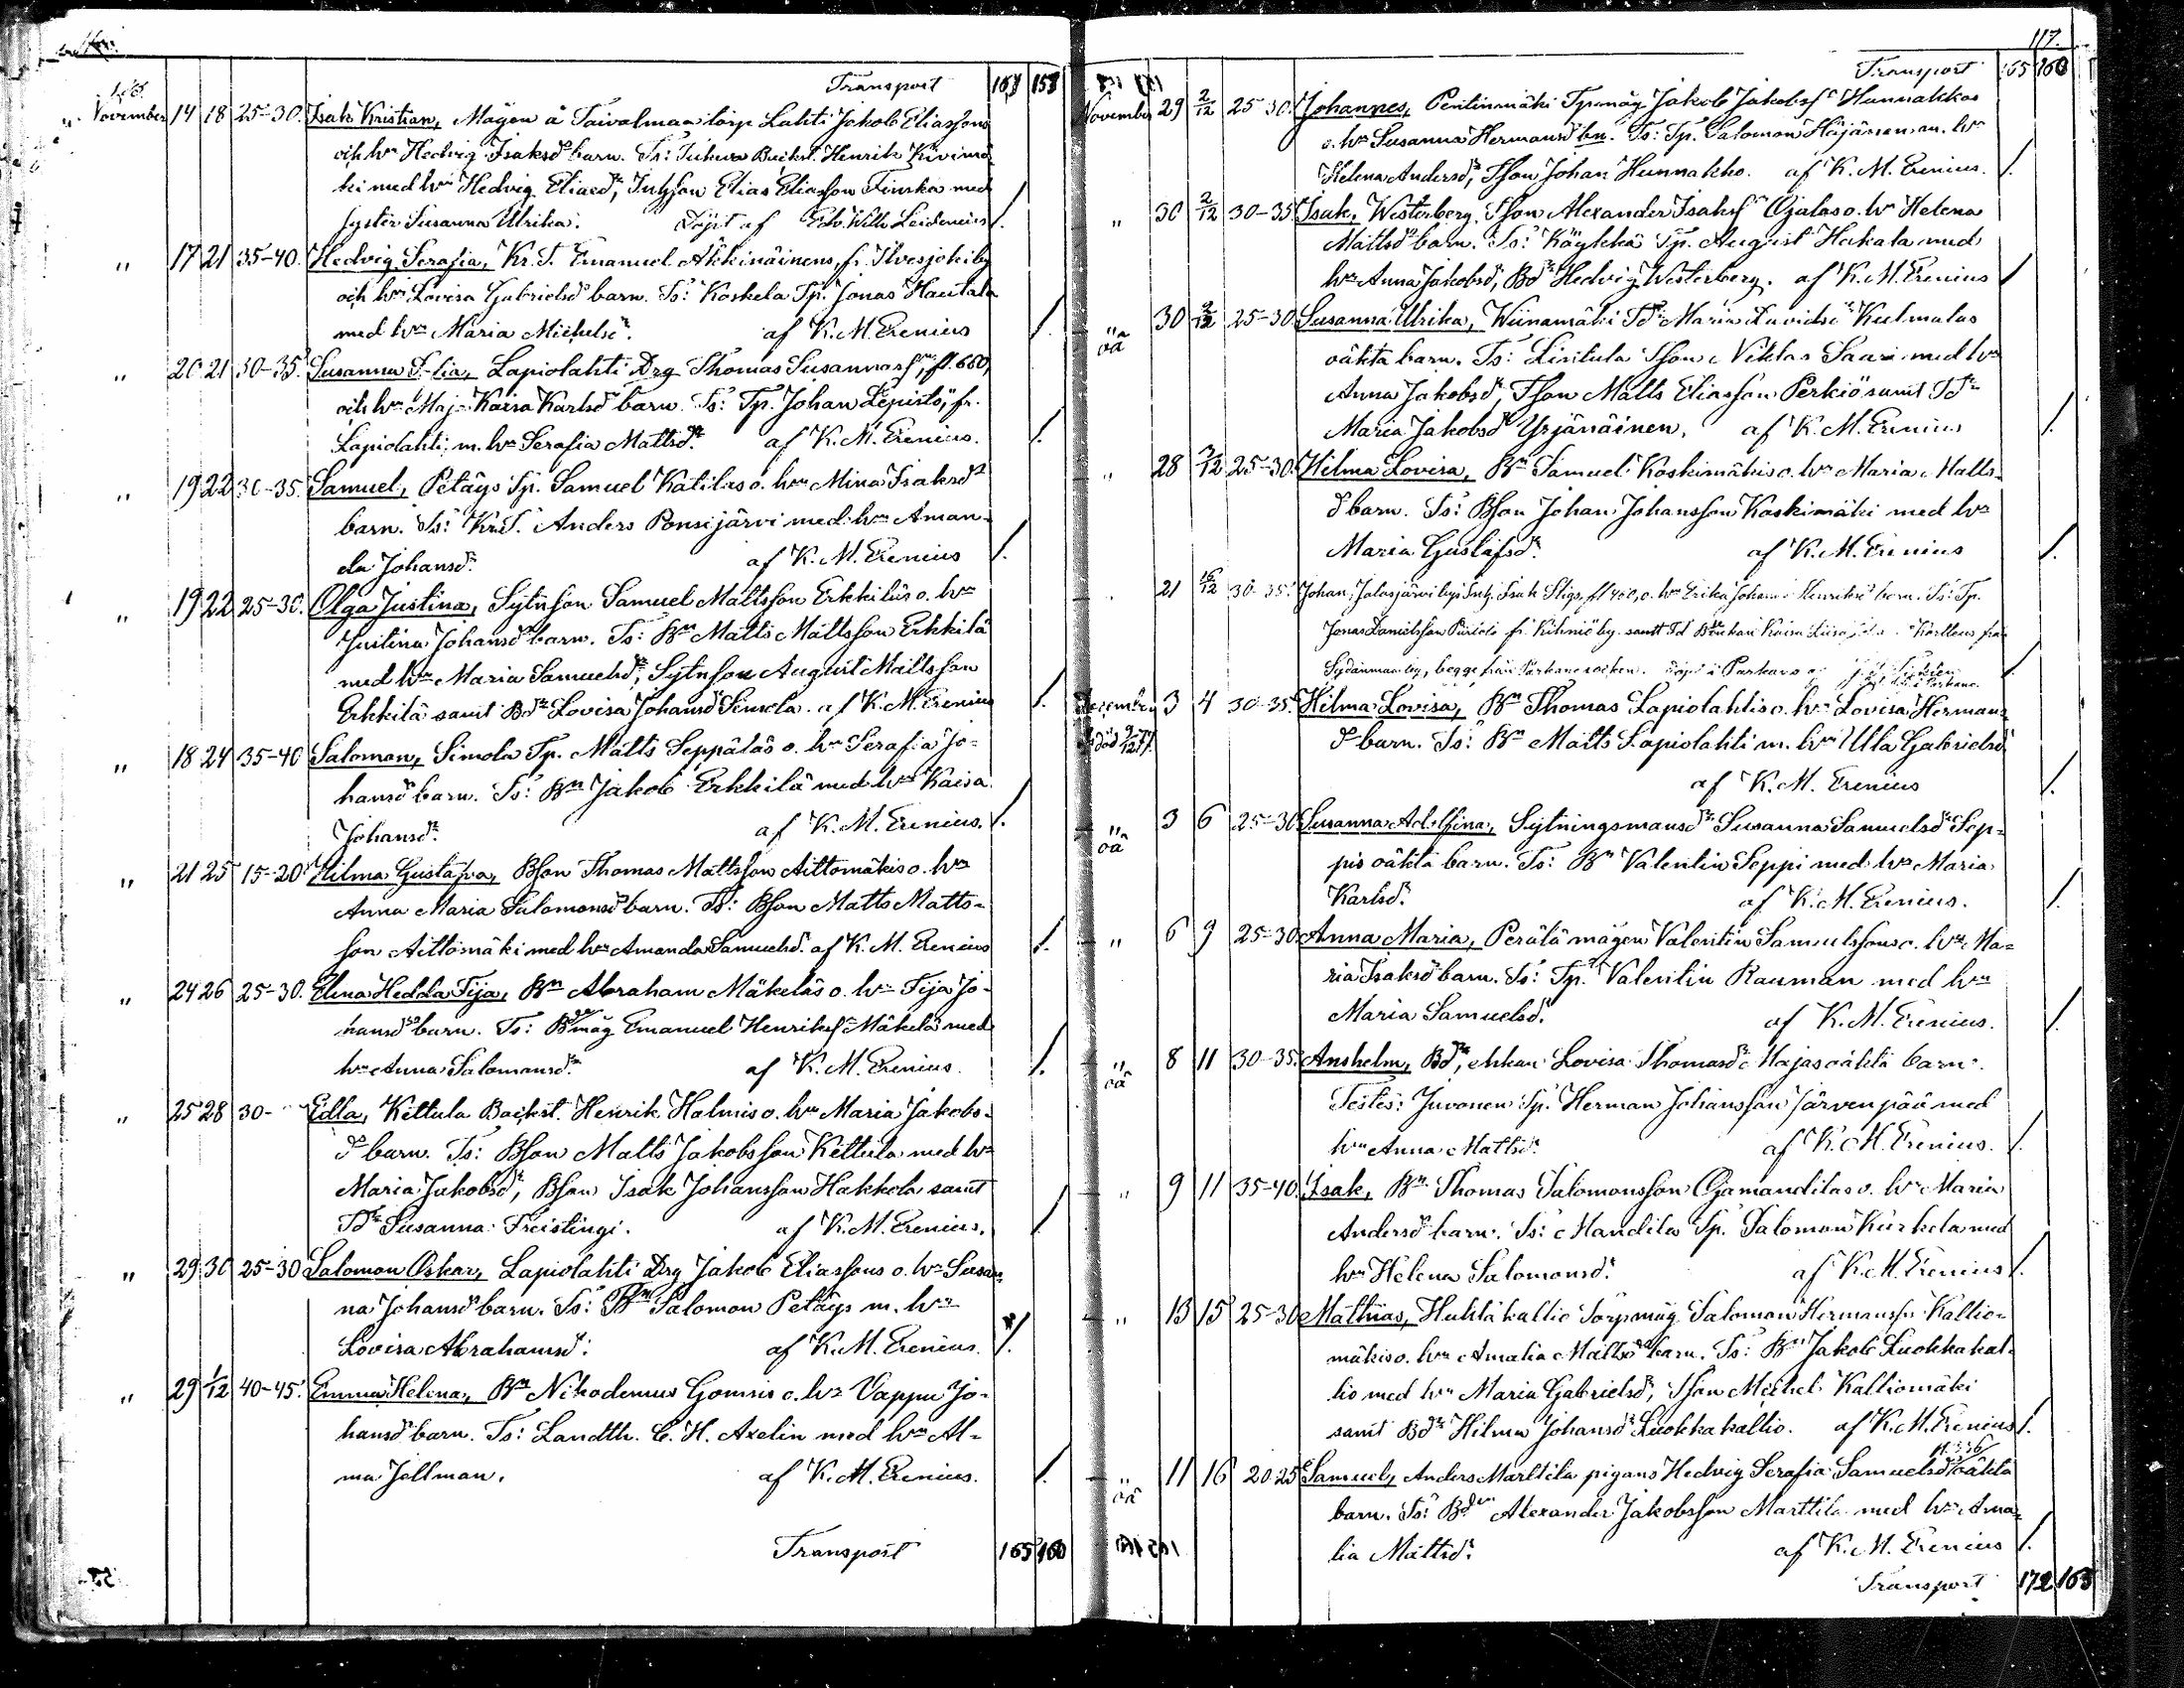 Transport 158
November 14 18 25-30. Isak Kristian, Mågen å Taivalmaa torp Lahti Jakob Eliassons
och hn Hedvig Isaksdr barn. Ts: Backst. Henrik
ki med hn Hedvig Eliasdr, Elias Eliasson Finska med
syster Susanna Ulrika. Döpt af Edv. Wilh. Leidenius /.
" 17 21 35-40. Hedvig Serafia, Kr. T. Emanuel Äkkinäinens, fr. Ilvesjoki by
och hn Lovisa Gabrielsdr barn. Ts: Koskela Tp. Jonas Hautala
med hn Maria Michelsdr. af K. M. Erenius /.
" 20 21 30-35. Susanna Lapiolahti Drg Thomas Susannass, fl. 660,
och hn Maj- Kaisa Karlsdr barn. Ts: Tp. Johan Lepistö, fr.
Lapiolahti, m. hn Serafia Mattsdr. af K. M. Erenius. /.
" 19 22 30-35. Samuel, Petäys Tp. Samuel Katilas o. hn Mina Isaksdr
barn. Ts: Kr. T. Anders Ponsijärvi med hn Aman-
da Johansdr. af K. M. Erenius /.
" 19 22 25-30. Olga Justina, Sytnson Samuel Mattsson Erkkiläs o. hn
Justina Johansdr barn. Ts: Bn Matts Mattsson Erkkilä
med hn Maria Samuelsdr, Sytnson August Mattsson
Erkkilä samt Bdr Lovisa Johansdr Simola. af K. M. Erenius /.
" 18 24 35-40 Salomon, Simola Tp. Matts Seppäläs o. hn Serafia Jo-
hansdr barn. Ts: Bn Jakob Erkkilä med hn Kaisa
Johansdr. af K. M. Erenius. /.
" 21 25 15-20 Hilma Gustafva, Bson Thomas Mattsson Aittomäkis o. hn
Anna Maria Salomonsdr barn. Ts: Bson Matts Matts-
son Aittomäki med hn Amanda Samuelsdr. af K. M. Erenius /.
" 24 26 25-30. Elina Hedda Fija, Bn Abraham Mäkeläs o. hn Fija Jo-
hansdr barn. Ts: Bmåg Emanuel Henrikss Mäkelä med
hn Anna Salomonsdr. af K. M. Erenius. /.
" 25 28 30- Edla, Kettula Backst. Henrik Holmis o. hn Maria Jakobs-
dr barn. Ts: Bson Matts Jakobsson Kettula med hn
Maria Jakobsdr, Bson Isak Johansson Hakkola samt
Tdr Susanna Freistingi. af K. M. Erenius. /
" 29 30 25-30 Salomon Oskar, Lapiolahti Drg Jakob Eliassons o. hn Susan-
na Johansdr barn. Ts: Bn Salomon Petäys m. hn
Lovisa Abrahamsdr. af K. M. Erenius. /.
" 29 1/12 40-45. Emma Helena, Bn Nikodemus Gomsis o. hn Vappu Jo-
hansdr barn. Ts: Landth. C. H. Axelin med hn Al-
ma Jellman. af K. M. Erenius. /.
Transport 165 160
117.
Transport 165 160
November 29 2/12 25-30. Johannes, Pentinmäki Tpmåg Jakob Jakobss Hunnakkos
o. hn Susanna Hermansdr bn. Ts: Tp. Salomon m. hn
Helena Andersdr, Tson Johan Hunnakko. af K. M. Erenius. /.
" 30 2/12 30-35 Isak, Westerberg, Tson Alexander Isakss Ojalas o. hn Helena
Mattsdr barn. Ts: Käykkä Tp. August Hakala med
hn Anna Jakobsdr, Bdr Hedvig Westerberg. af K. M. Erenius /
" oä 30 2/12 25-30 Susanna Ulrika, Wiinamäki Tdr Maria Davidsdr Kulmalas
oäkta barn. Ts: Tson Niklas Saari med hn
Anna Jakobsdr, Tson Matts Eliasson Perkiö samt Tdr
Maria Jakobsdr Yrjänäinen. af K. M. Erenius /.
" 28 3/12 25-30. Hilma Lovisa, Bn Samuel Koskimäkis o. hn Maria Matts-
dr barn. Ts: Bson Johan Johansson Koskimäki med hn
Maria Gustafsdr. af K. M. Erenius /.
21 16/12 30-35. Johan, Jalasjärvi by Isak Stigs, fl 460, o. hn Erika Johanna Henriksdr barn. Ts: Tp.
Jonas Danielsson fr. Kihniö by samt Kaisa från
Sydänmaa by, begge från Parkano socken. Döpt i Parkano /.
December 3 4 30-35. Hilma Lovisa, Bn Thomas Lapiolahtis o. hn Lovisa Hermans-
dr barn. Ts: Bn Matts Lapiolahti m. hn Ulla Gabrielsdr
af K. M. Erenius /.
" oä 3 6 25-30 Susanna Adolfina, Sytningsmansdr Susanna Samuelsdr Sep-
pis oäkta barn. Ts: Bn Valentin Seppi med hn Maria
Karlsdr. af K. M. Erenius. /.
" 6 9 25-30 Anna Maria, Perälä mågen Valentin Samuelssons o. hn Ma-
ria Isaksdr barn. Ts: Tp. Valentin Rauman med hn
Maria Samuelsdr. af K. M. Erenius. /.
" oä 8 11 30-35. Anshelm, Bdr, enkan Lovisa Thomasdr Hajas oäkta barn.
Testes: Juvonen Tp. Herman Johansson Järvenpää med
hn Anna Mattsdr. af K. M. Erenius. /.
" 9 11 35-40. Isak, Bn Thomas Salomonsson Ojamandilas o. hn Maria
Andersdr barn. Ts: Mandila Tp. Salomon Kurkela med
hn Helena Salomonsdr. af K. M. Erenius /.
" 13 15 25-30 Mathias, Huhtakallio Torpmåg Salomon Hermanss Kallio-
mäkis o. hn Amalia Mattsdr barn. Ts: Bn Jakob Luokkakal-
lio med hn Maria Gabrielsdr, Tson Michel Kalliomäki
samt Bdr Hilma Johansdr Luokkakallio. af K. M. Erenius /.
" oä 11 16 20-25 Samuel, Anders Marttila pigans Hedvig Serafia Samuelsdr oäkta
barn. Ts: Alexander Jakobsson Marttila med hn Ama-
lia Mattsdr. af K. M. Erenius /.
Transport 172 163